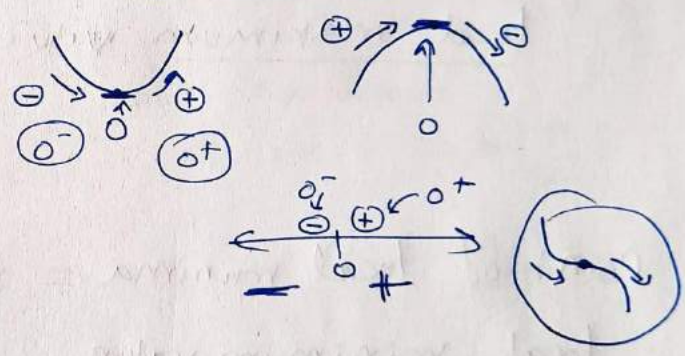 ⊕ ⊖
⊖ 0 ⊕
0⁻ 0⁺
0
0⁻ 0⁺
⊖ ⊕
0
− +